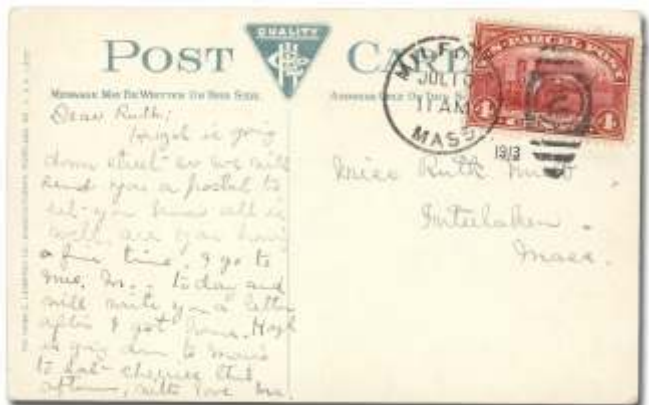 POST CARD
QUALITY
MESSAGE MAY BE WRITTEN ON THIS SIDE
ADDRESS ONLY ON THIS SIDE
MILFORD
JUL 10
11 AM
MASS
1913
U.S. PARCEL POST
4 4
Dear Ruth;
Hugh is going
down street so we will
send you a postal to
let you know all is
well. are you having
a fine time. I go to
today and
will write you a letter
after I get home. Hugh
is going down to
to eat cherries this
afternoon, with love
Miss Ruth
Interlaken.
Mass.